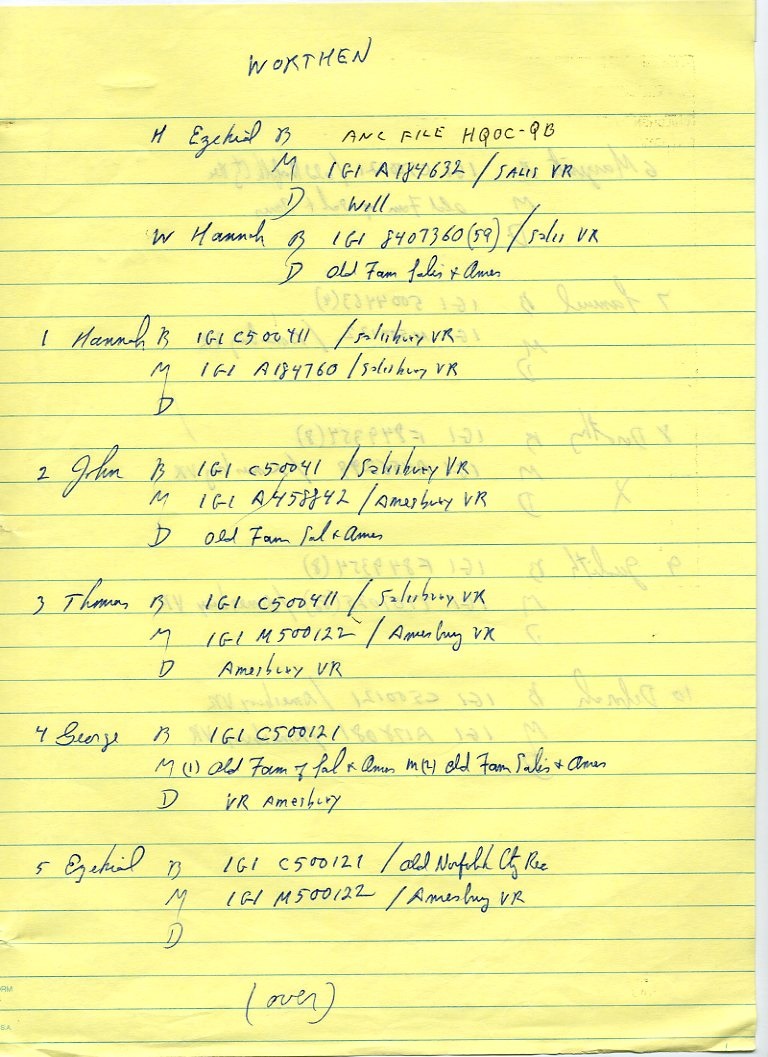 WORTHEN
H Ezekial B ANC FILE HQOC-QB
M IGI A184632 / SALIS VR
D Will
W Hannah B IGI 8407360(59) / Salis VR
D Old Fam Salis + Ames
1 Hannah B IGI C500411 / Salisbury VR
M IGI A184760 / Salisbury VR
D
2 John B IGI C50041 / Salisbury VR
M IGI A458842 / Amesbury VR
D Old Fam Sal + Ames
3 Thomas B IGI C500411 / Salisbury VR
M IGI M500122 / Amesbury VR
D Amesbury VR
4 George B IGI C500121
M (1) Old Fam of Sal + Ames m(2) Old Fam Salis + Ames
D VR Amesbury
5 Ezekial B IGI C500121 / Old Norfolk Cty Rec
M IGI M500122 / Amesbury VR
D
(over)